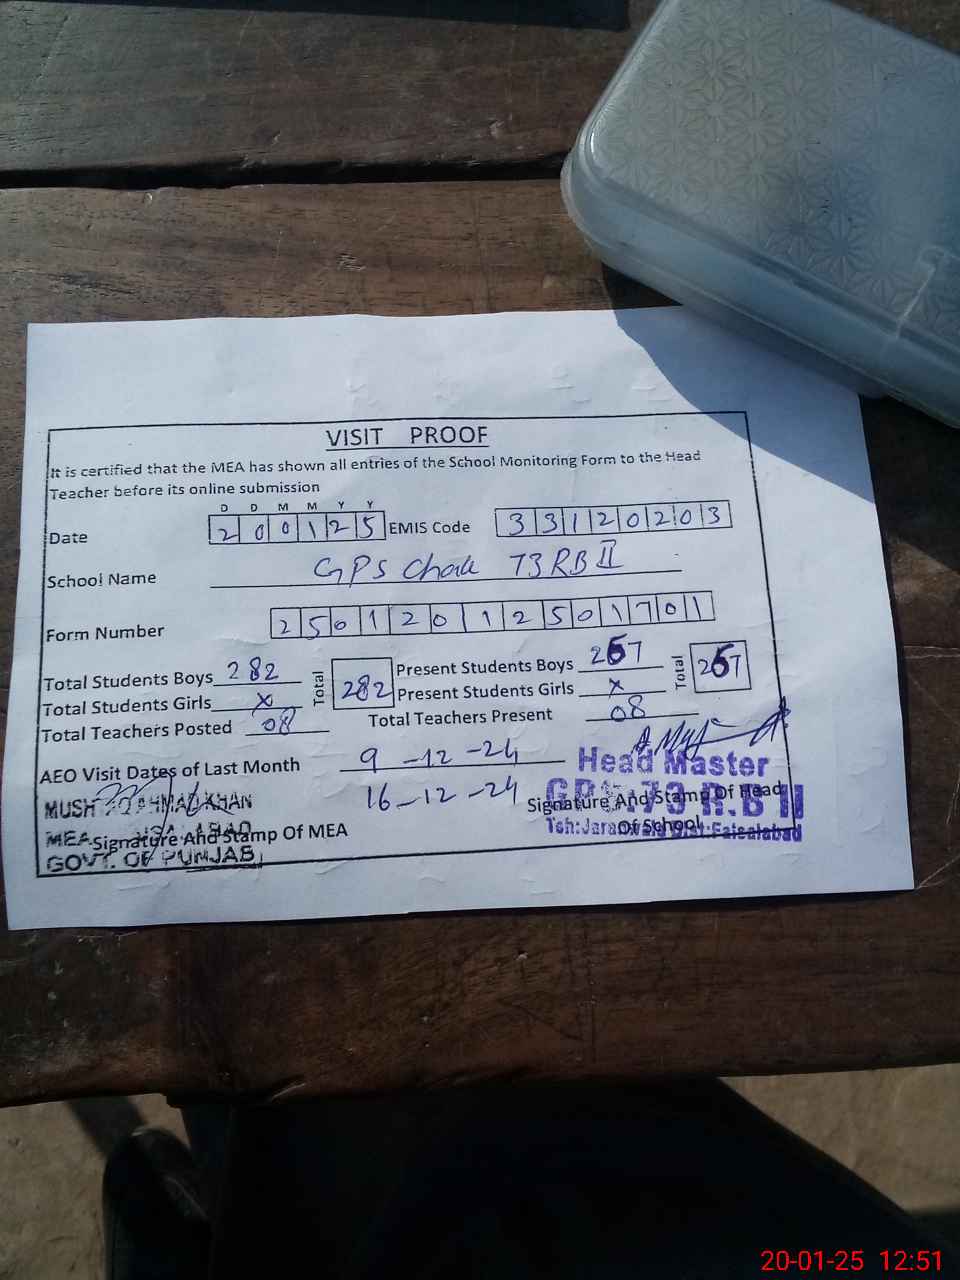 VISIT PROOF
It is certified that the MEA has shown all entries of the School Monitoring Form to the Head
Teacher before its online submission
D D M M Y Y
Date 2 0 0 1 2 5 EMIS Code 3 3 1 2 0 2 0 3
School Name GPS Chak 73 RB II
Form Number 2 5 0 1 2 0 1 2 5 0 1 7 0 1
Total Students Boys 282 Total 282 Present Students Boys 267 Total 267
Total Students Girls x Present Students Girls x
Total Teachers Posted 08 Total Teachers Present 08
AEO Visit Dates of Last Month 9-12-24
16-12-24
Head Master
GPS: 73 R.B II
Signature And Stamp Of Head
Of School
Teh: Jaranwala Dist: Faisalabad
AHMAD KHAN
MEA
Signature And Stamp Of MEA
GOVT. OF PUNJAB
20-01-25 12:51